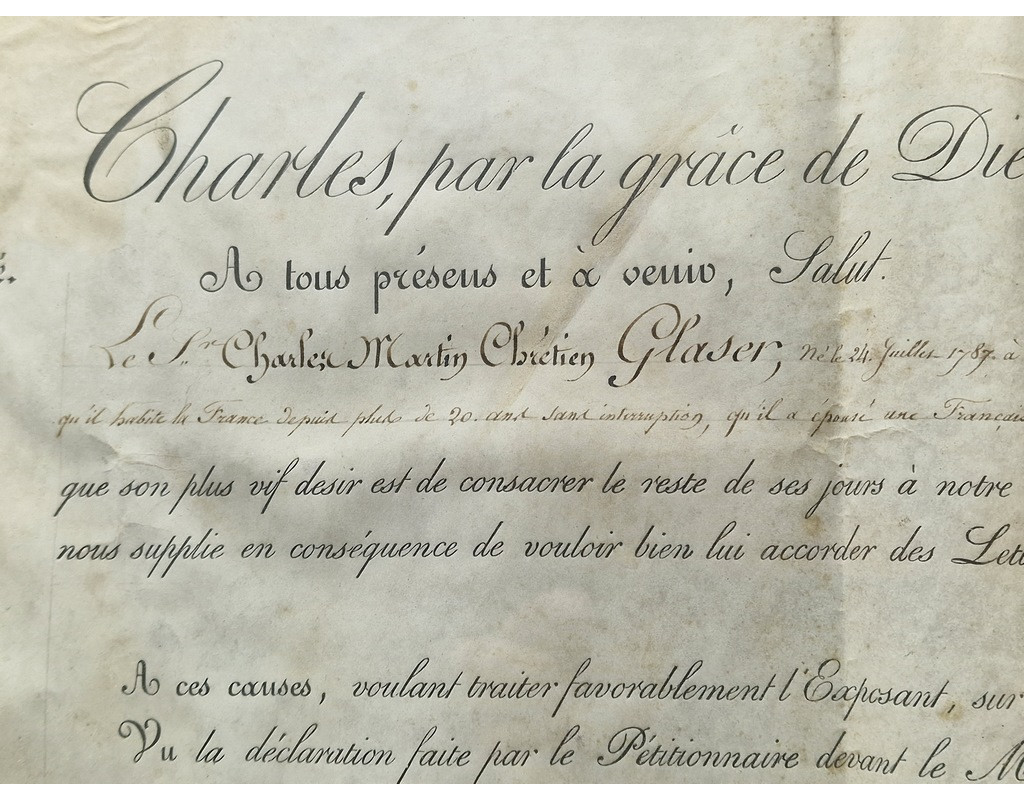 Charles, par la grâce de Die
é.
A tous présens et à venir, Salut.
Le Sr. Charles Martin Chrétien Glaser, né le 24. Juillet 1787. à
qu'il habite la France depuis plus de 20. ans sans interruption, qu'il a épousé une Français
que son plus vif desir est de consacrer le reste de ses jours à notre
nous supplie en conséquence de vouloir bien lui accorder des Lett
A ces causes, voulant traiter favorablement l'Exposant, sur
Vu la déclaration faite par le Pétitionnaire devant le M